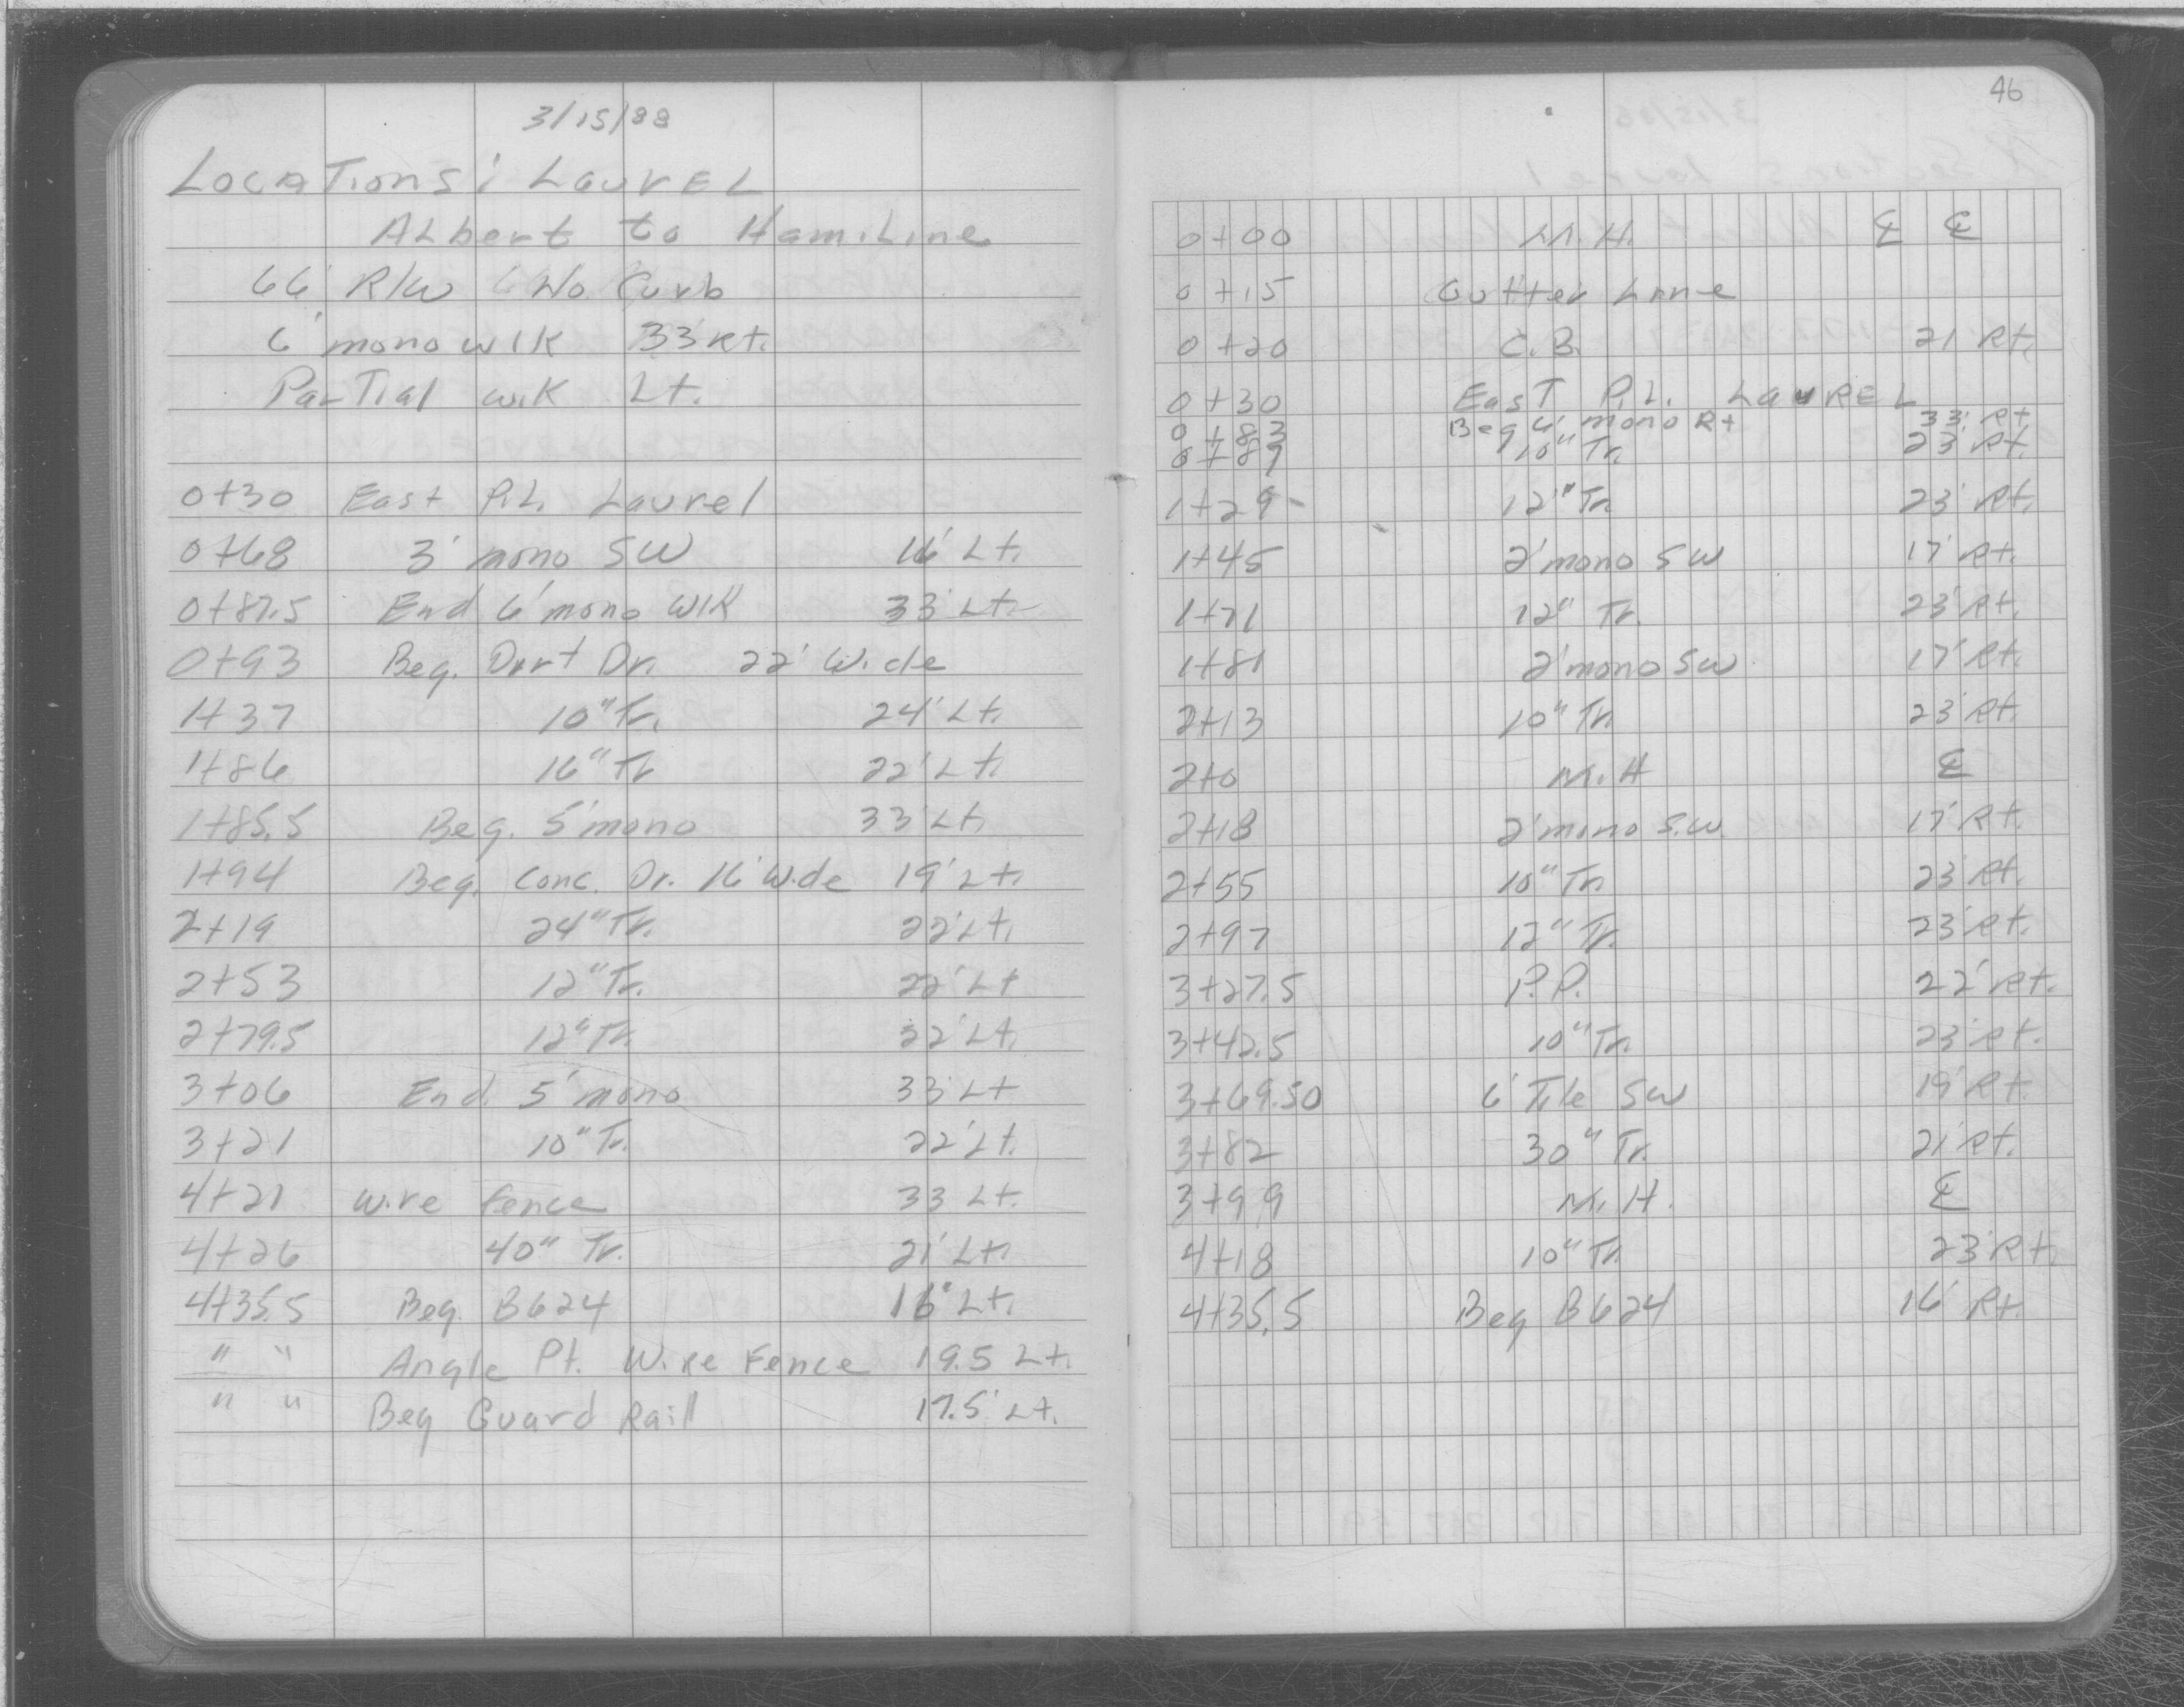 3/15/88
Locations: Laurel
Albert to Hamiline
66' R/W No Curb
6' mono wlk 33' Rt.
Partial wlk Lt.
0+30 East P.L. Laurel
0+68 3' mono SW 16' Lt.
0+87.5 End 6' mono wlk 33' Lt.
0+93 Beg. Dirt Dr. 22' Wide
1+37 10" Tr. 24' Lt.
1+86 16" Tr 22' Lt.
1+85.5 Beg. 5' mono 33' Lt.
1+94 Beg. Conc. Dr. 16' Wide 19' Lt.
2+19 24" Tr. 22' Lt.
2+53 12" Tr. 22' Lt
2+79.5 12" Tr. 22' Lt.
3+06 End 5' mono 33' Lt
3+21 10" Tr. 22' Lt.
4+21 Wire fence 33 Lt.
4+26 40" Tr. 21' Lt.
4+35.5 Beg. B624 16' Lt.
" " Angle Pt. Wire Fence 19.5 Lt.
" " Beg Guard Rail 17.5' Lt.
46
0+00 M.H. ℄ ℄
0+15 Gutter Line
0+20 C.B. 21 Rt.
0+30 East P.L. Laurel
0+83 Beg 6' mono Rt 33' Rt
0+87 10" Tr. 23' Rt.
1+29 12" Tr. 23' Rt.
1+45 2' mono SW 17' Rt.
1+71 12" Tr. 23' Rt.
1+81 2' mono SW 17' Rt.
2+13 10" Tr. 23' Rt.
2+0 M.H ℄
2+18 2' mono S.W. 17' Rt.
2+55 10" Tr. 23' Rt.
2+97 12" Tr. 23' Rt.
3+27.5 P.P. 22' Rt.
3+42.5 10" Tr. 23' Rt.
3+69.50 6' Tile SW 19' Rt.
3+82 30" Tr. 21' Rt.
3+99 M.H. ℄
4+18 10" Tr. 23' Rt.
4+35.5 Beg B624 16' Rt.